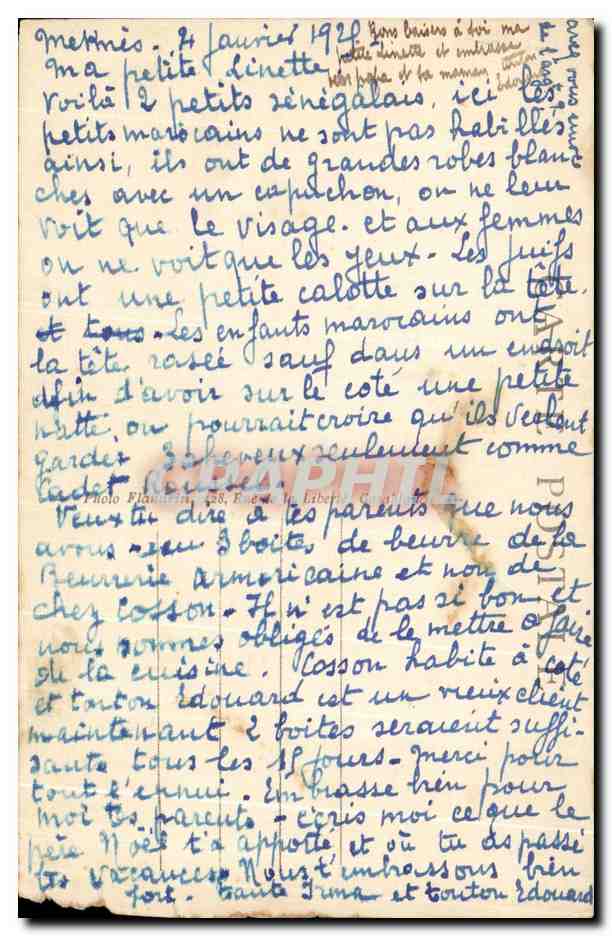 Meknès. 4 janvier 192
Ma petite Linette
Voilà 2 petits sénégalais, ici les
petits marocains ne sont pas habillés
ainsi, ils ont de grandes robes blan-
ches avec un capuchon, on ne leur
voit que le visage. et aux femmes
on ne voit que les yeux. Les juifs
ont une petite calotte sur la tête.
et tous. Les enfants marocains ont
la tête rasée sauf dans un endroit
afin d'avoir sur le coté une petite
natte, on pourrait croire qu'ils veulent
garder 3 cheveux seulement comme
Cadet Roussel.
Veux tu dire à tes parents que nous
avons reçu 3 boites de beurre de la
Beurrerie armoricaine et non de
chez Cosson. Il n'est pas si bon et
nous sommes obligés de le mettre à faire
de la cuisine. Cosson habite à coté
et tonton Edouard est un vieux client
maintenant 2 boites seraient suffi-
sante tous les 15 jours. Merci pour
tout l'ennui. Embrasse bien pour
moi tes parents. écris moi ce que le
père Noël t'a apporté et où tu as passé
tes vacances. Nous t'embrassons bien
fort. tante Irma et tonton Edouard
Bons baisers à toi ma
petite Linette et embrasse
ton papa et ta maman
tonton
Edouard
avez vous eu
CARTE POSTALE
Photo Flandrin, 128, Rue de la Liberté, Casablanca
DELCAMPHIL